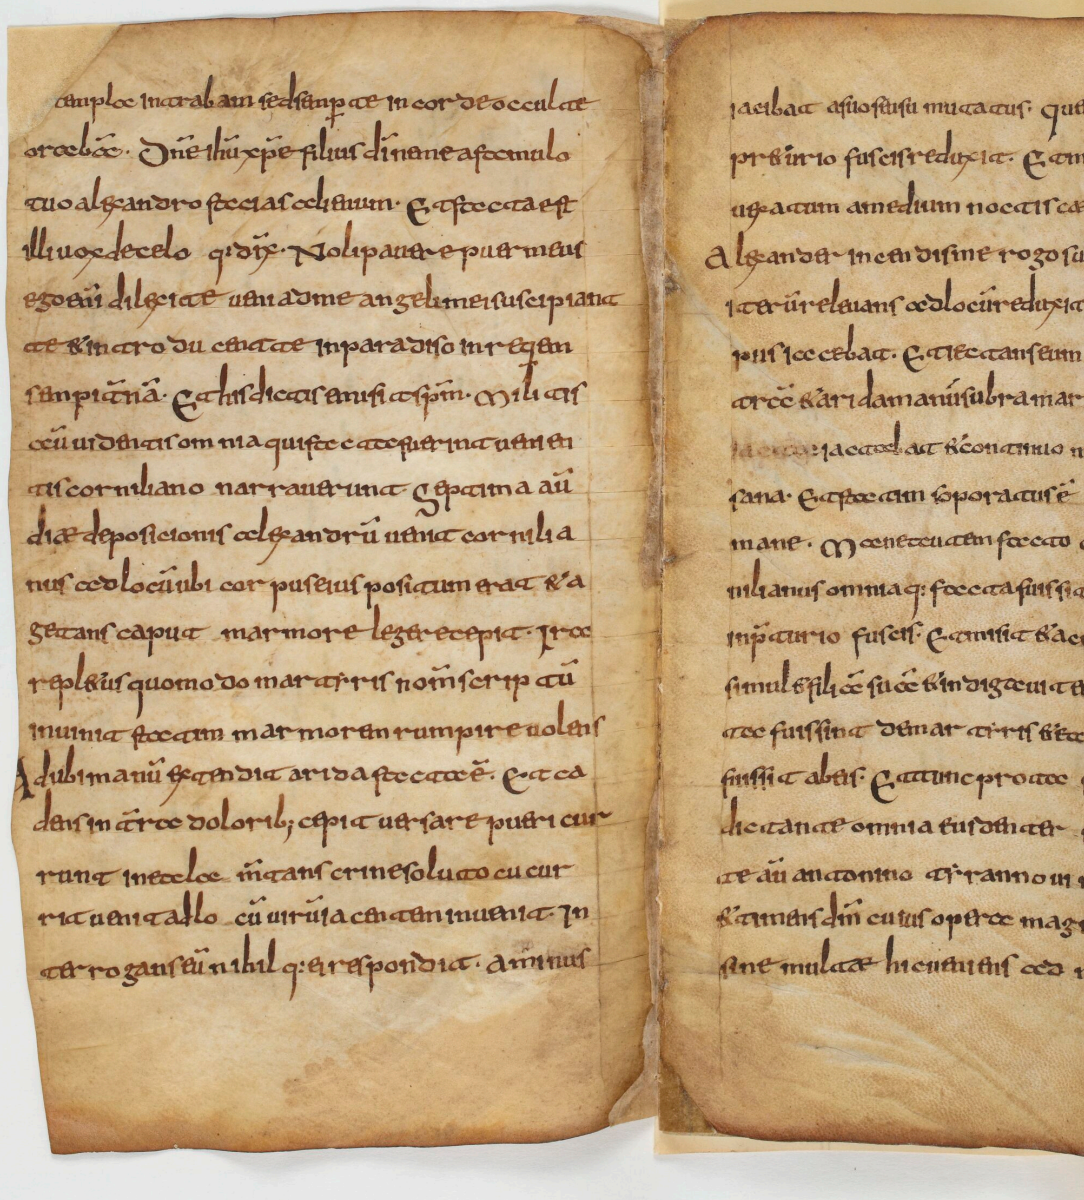 templa intrabam sed semp te in corde occulte
orabā. Dn̄e ihū xp̄e filius dī ueni a famulo
tuo alexandro facias celi enum. Et facta est
illi uox de celo q; dix̄. Noli pauere puer meus
ego eni dilexi te ueni ad me angeli mei suscipiant
te & introducent te in paradiso in requem
sempit̄nā. Et his dictis emisit spm̄. Militis
aū uidentis omnia qui facta fuerint uenien
tis corniliano narrauerunt. Septima aū
diæ deposicionis alexandrū uenit cornilia
nus ad locū ubi corpus eius positum erat & a
getans caput marmore legere cepit. Ira
repletus quomodo martyris nom̄ scriptū
inuinit factum marmorem rumpire uolens
Ad ubi manū extendit arida facta ē. Et ca
dens in t̄ra dolorib; cepit uersare pueri cur
runt in etcloe m̄tans crine soluto cucur
rit uenit ad lo cū uirū iacentem inuenit. In
terrogans eū nihil q; ei respondit. Aminus
iacibat a suo sinsu mutatus. Que
pretirio fuscis reduxit. Et
uexatum a medium noctis
Alexander incendis me rogo
iterū releuans ad locū reduxit
pus iacebat. Et iactans eum
trā & aridam manū subra mar
iactabat & continuo
sana. Et factum soporatus ē
mane. M autem facto
nilianus omniaq; facta fuissi
inp̄turio fuscis. Et misit &
simul & filiā suā & indigauit
ta fuissint de martyris &
fuissit abeis. Et tunc pro
dictante omnia eusdenter
te aū antonino tyranno
& timens dm̄ cuius opera
sine multæ hic ueniens ad